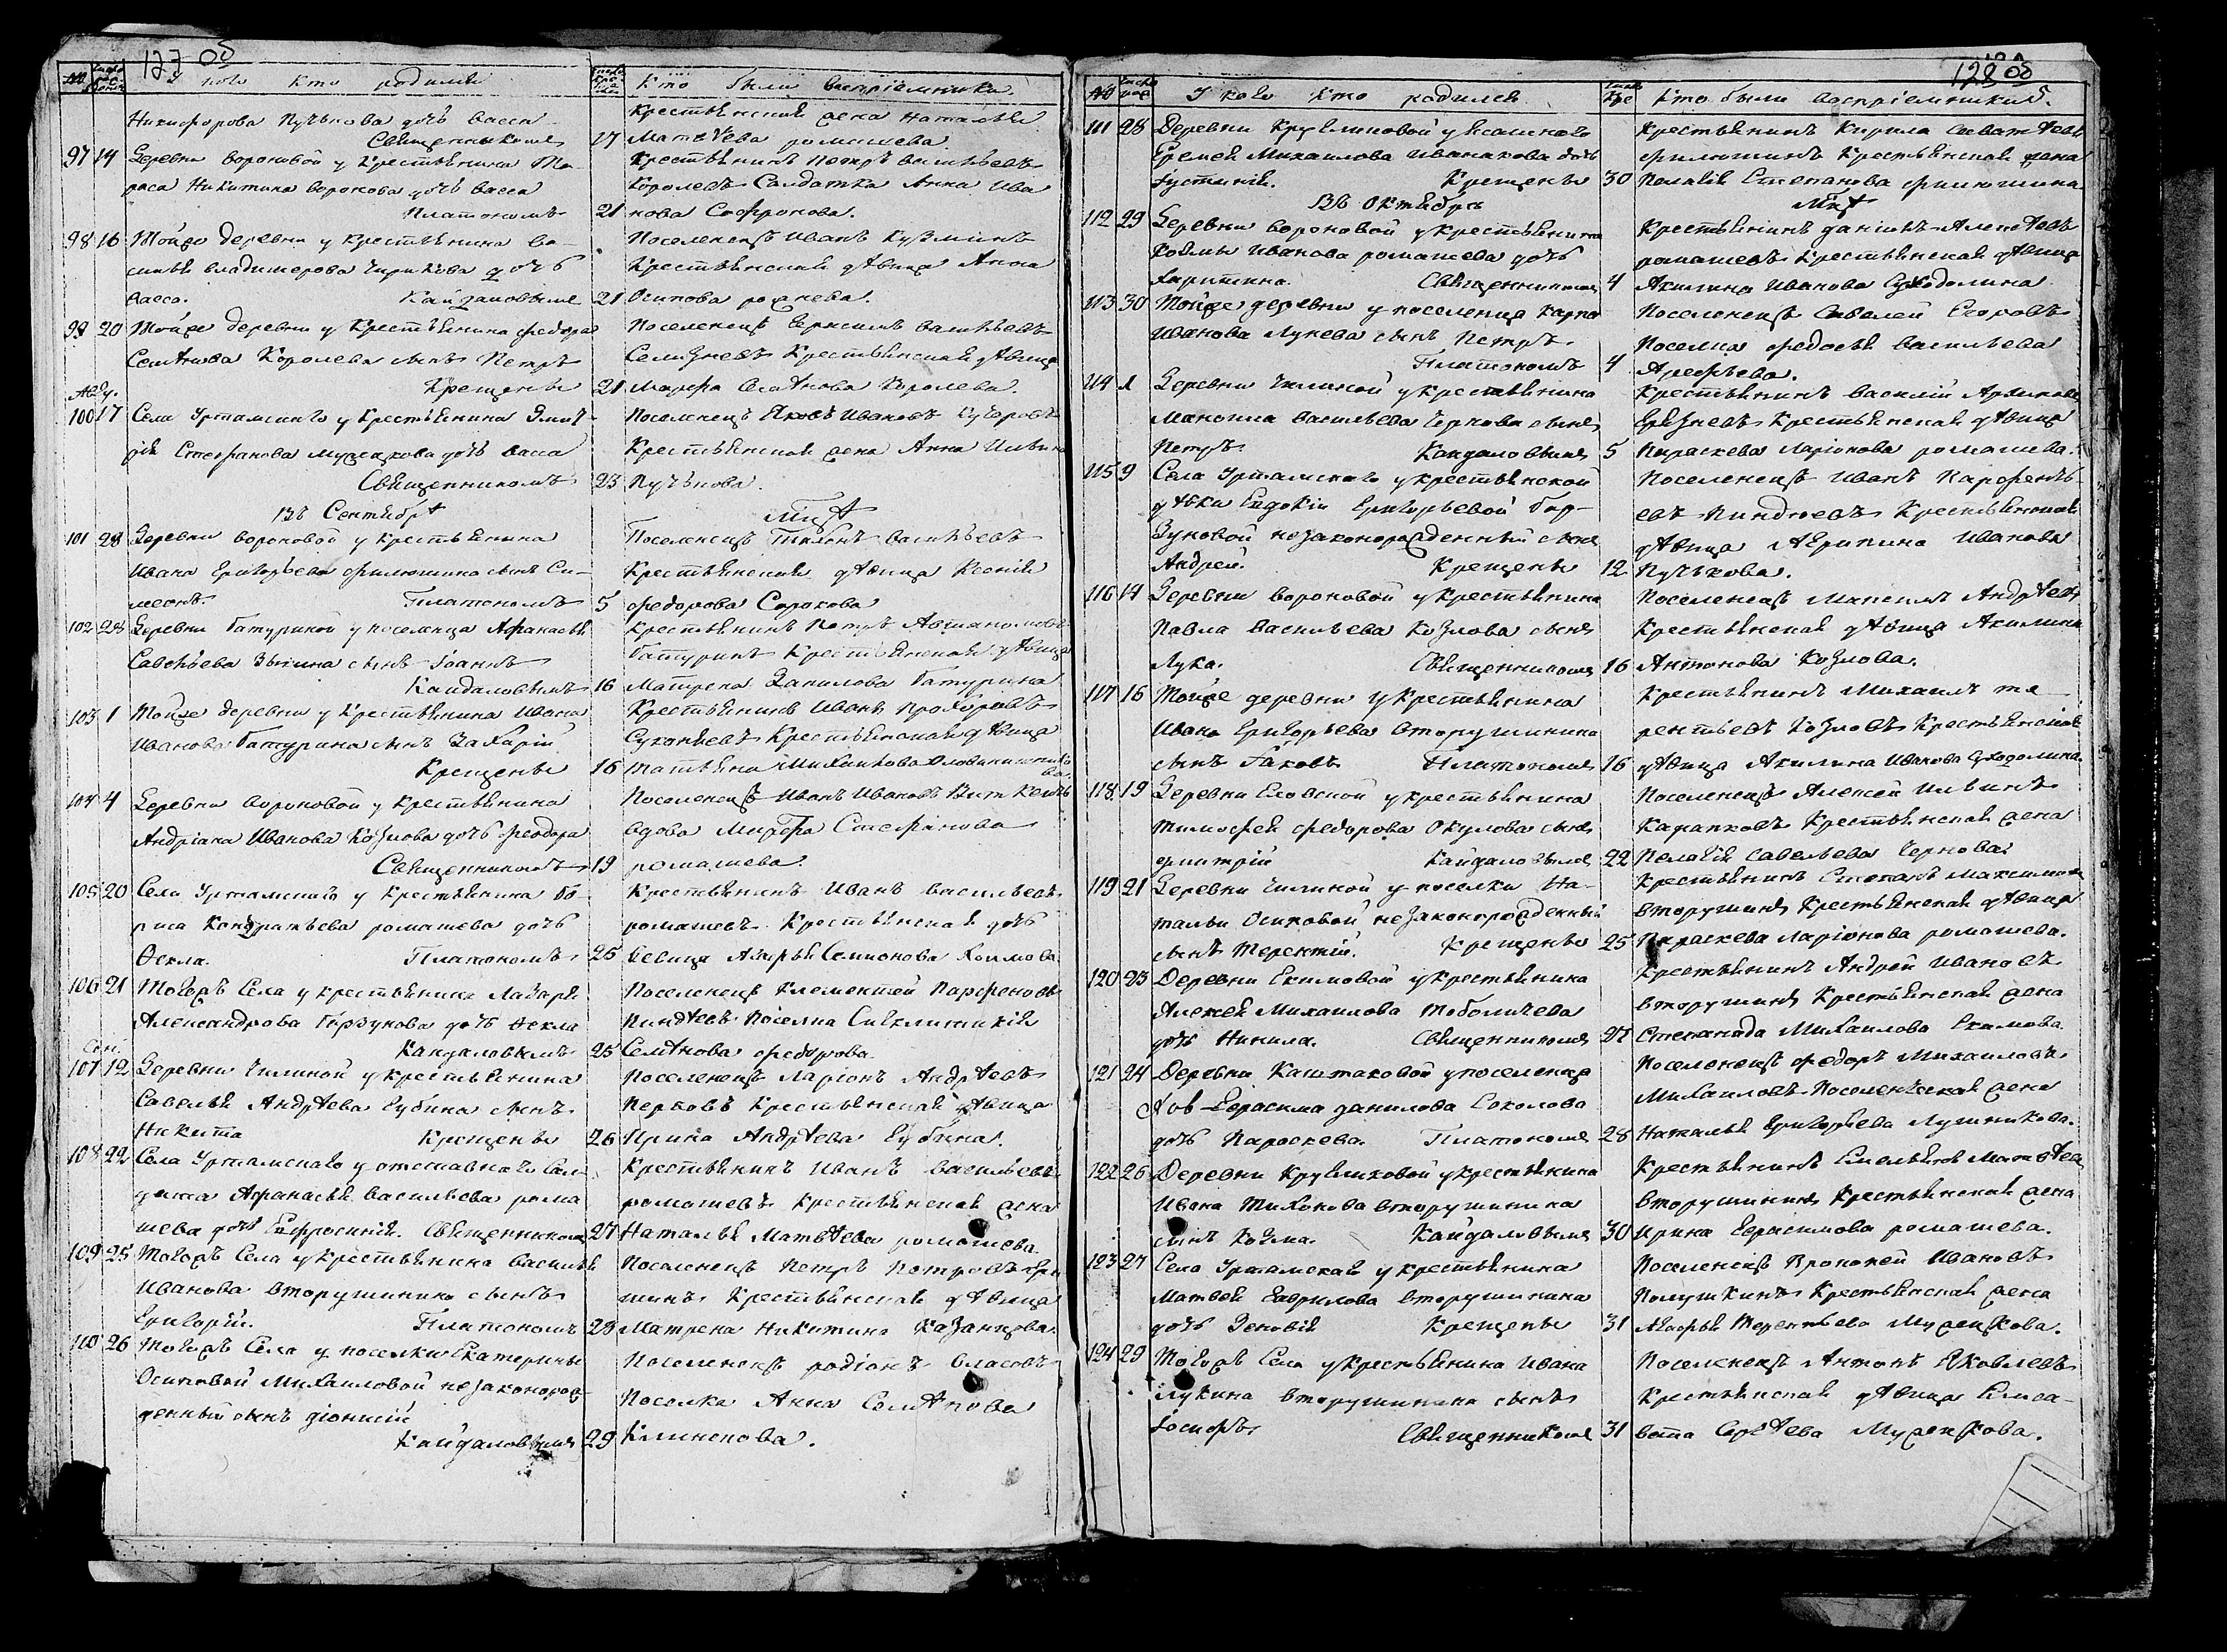 127 об
№
У кого кто родился
Кто были воспріемники.
Никифорова Пучькова дочь васса
Священникомъ
17
Крестьянская жена наталья
Матвѣева ромашева.
97 14 Деревни вороновой у крестьянина Та-
раса Никитина воронова дочь васса
Платономъ
21
Крестьянинъ Петръ васильевъ
Королевъ Салдатка Анна Ива
нова Сафронова.
98 16 Тойже деревни у крестьянина ва-
силья владимерова Чирикова дочь
васса. Кайдаловымъ
21
Поселенецъ Иванъ Кузминъ
Крестьянская дѣвица Анна
Осипова
99 20 Тойже деревни у Крестьянина федора
Семѣнова Королева сынъ Петръ
Крещены
21
Поселенецъ Герасимъ васильевъ
Селезневъ Крестьянская дѣвица
Марфа Семѣнова Королева.
Авгу.
100 17 Села Уртамскаго у крестьянина Дмит-
рія Стефанова дочь васса
Священникомъ
23
Поселенецъ Яковъ Ивановъ
Крестьянская жена Анна Ильина
Пучькова.
Въ Сентябрѣ
Мцѣ
101 28 Деревни вороновой у крестьянина
Ивана Григорьева Филюшина сынъ Си-
меонъ. Платономъ
5
Поселенецъ васильевъ
Крестьянская дѣвица Ксенія
федорова Сорокова
102 28 Деревни батуриной у поселенца Афанасья
Савельева Зыкина сынъ Іоаннъ
Кайдаловымъ
16
Крестьянинъ Петръ
батуринъ Крестьянская дѣвица
Матрена Данилова батурина
103 1 Тойже деревни у Крестьянина Ивана
Иванова батурина сынъ Захарій
Крещены
16
Крестьянинъ Иванъ Прохоровъ
Крестьянская дѣвица
Татьяна Михайлова
104 4 Деревни вороновой у крестьянина
Андріана Иванова Козлова дочь феодора
Священникомъ
19
Поселенецъ Иванъ Ивановъ
вдова Марфа Стефанова
ромашева.
105 20 Села Уртамскаго у Крестьянина бо-
риса Кондратьева ромашева дочь
Ѳекла. Платономъ
25
Крестьянинъ Иванъ васильевъ
ромашевъ Крестьянская дочь
девица Агафья Семионова
106 21 Тогожъ Села у крестьянина Лазаря
Александрова борзунова дочь Ѳекла
Кайдаловымъ
25
Поселенецъ Клементей Парфеновъ
Пиндѣевъ Поселка
Семѣнова федорова.
Сен.
107 12 Деревни Чилиной у крестьянина
Савелья Андрѣева Губина сынъ
Никита Крещены
26
Поселенецъ Ларіонъ Андрѣевъ
Перковъ Крестьянская дѣвица
Ирина Андрѣева Губина.
108 22 Села Уртамскаго у отставнаго Сал-
дата Афанасья васильева рома
шева дочь Евфросинія. Священникомъ
27
Крестьянинъ Иванъ васильевъ
ромашевъ Крестьянская жена
Наталья Матвѣева ромашева.
109 25 Тогожъ Села у крестьянина василья
Иванова вторушина сынъ
Григорій. Платономъ
29
Поселенецъ Петръ Петровъ
шинъ Крестьянская дѣвица
Матрена Никитина Казанцова.
110 26 Тогожъ Села у поселки Екатерины
Осиповой Михайловой незаконорож-
денный сынъ діонисій
Кайдаловымъ
29
Поселенецъ родіонъ власовъ
Поселка Анна Семѣнова
Клинскова.
128 об
№
У кого кто родился
Кто были воспріемники.
111 28 Деревни Кругликовой у ясашнаго
Еремея Михайлова Иванакова дочь
Іустинія. Крещены
30
Крестьянинъ Кирила
филюшинъ Крестьянская жена
Пелагія Степанова филюшина.
Въ Октябрѣ
Мцѣ
112 29 Деревни вороновой у крестьянина
Козмы Иванова ромашева дочь
Харитина. Священникомъ
4
Крестьянинъ даніилъ Алексѣевъ
ромашевъ Крестьянская дѣвица
Акилина Иванова Суходолина.
113 30 Тойже деревни у поселенца Карпа
Иванова Лунева сынъ Петръ.
Платономъ
4
Поселенецъ Савелей Егоровъ
Поселка федосья васильева
Арефьева.
114 1 Деревни Чилиной у крестьянина
Манойла васильева Чернова сынъ
Петръ. Кайдаловымъ
5
Крестьянинъ василій
Крестьянская дѣвица
Параскева Ларіонова ромашева.
115 9 Села Уртамскаго у крестьянской
дѣвки Евдокіи Григорьевой бор-
зуновой незаконорожденный сынъ
Андрей. Крещены
12
Поселенецъ Иванъ Парфенть-
евъ Пиндюевъ Крестьянская
дѣвица Агрипина Иванова
Пучькова.
116 14 Деревни вороновой у крестьянина
Павла васильева Козлова сынъ
Лука. Священникомъ
16
Поселенецъ Максимъ Андрѣевъ
Крестьянская дѣвица Акилина
Антонова Козлова.
117 16 Тойже деревни у крестьянина
Ивана Григорьева вторушинина
сынъ Іаковъ. Платономъ
16
Крестьянинъ Михаилъ те
рентьевъ Козловъ Крестьянская
дѣвица Акилина Иванова Суходолина.
118 19 Деревни Еловской у крестьянина
тимофея федорова Окулова сынъ
дмитрій Кайдаловымъ
22
Поселенецъ Алексей Ильинъ
Карапковъ Крестьянская жена
Пелагія Савельева Чернова
119 21 Деревни Чилиной у поселки На-
тальи Осиповой незаконорожденный
сынъ Терентій. Крещены
25
Крестьянинъ Степанъ Максимовъ
вторушинъ Крестьянская дѣвица
Параскева Ларіонова ромашева.
120 23 Деревни Екимовой у крестьянина
Алексея Михайлова Тоболичева
дочь Нинила. Священникомъ
27
Крестьянинъ Андрей Ивановъ
вторушинъ Крестьянская жена
Степанида Михайлова Екимова
121 24 Деревни Каштаковой у поселенца
Герасима данилова Соколова
дочь Параскева. Платономъ
28
Поселенецъ федоръ Михайловъ
Михайловъ Поселенческая жена
Наталья Григорьева Лушникова.
122 26 Деревни Кругликовой у крестьянина
Ивана Тихонова вторушинина
сынъ Козма. Кайдаловымъ
30
Крестьянинъ Емельянъ Матвѣевъ
вторушининъ Крестьянская жена
Ирина Герасимова ромашева.
123 27 Села Уртамскаго у крестьянина
Матвея Гаврилова вторушинина
дочь Зеновія Крещены
31
Поселенецъ Прокопей Ивановъ
Полушкинъ Крестьянская жена
Агафья Терентьева
124 29 Тогожъ Села у крестьянина Ивана
Лукина вторушинина сынъ
Іосифъ Священникомъ
31
Поселенецъ Антонъ Яковлевъ
Крестьянская дѣвица Елиса-
вета Сергѣева